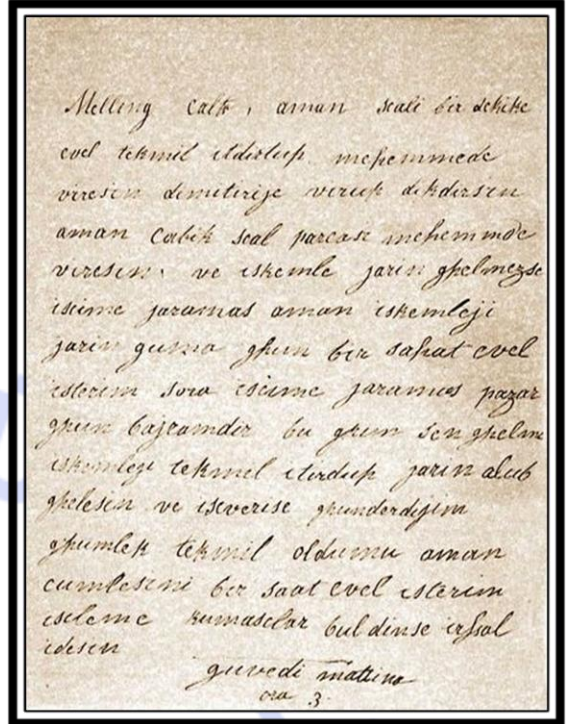 Melling Calfa, aman scali bir dekike
evel tekmil itdirtup mehemmede
viresin dimitirije virup dikdirsin
aman Cabik scal parcasi mehemmede
viresin. ve iskemle jarin ghelmezse
iscime jaramas aman iskemleji
jarin guma ghun bir sahat evel
isterim sora iscime jaramas pazar
ghun bajramdir bu ghun sen ghelme
iskemleji tekmil itirdup jarin alub
ghelesin ve iseverise ghunderdijim
ghumlek tekmil oldumu aman
cumlesini bir saat evel isterim
isleme kumasclar buldinse irsal
idesin
giuvedi mattina
ora 3.